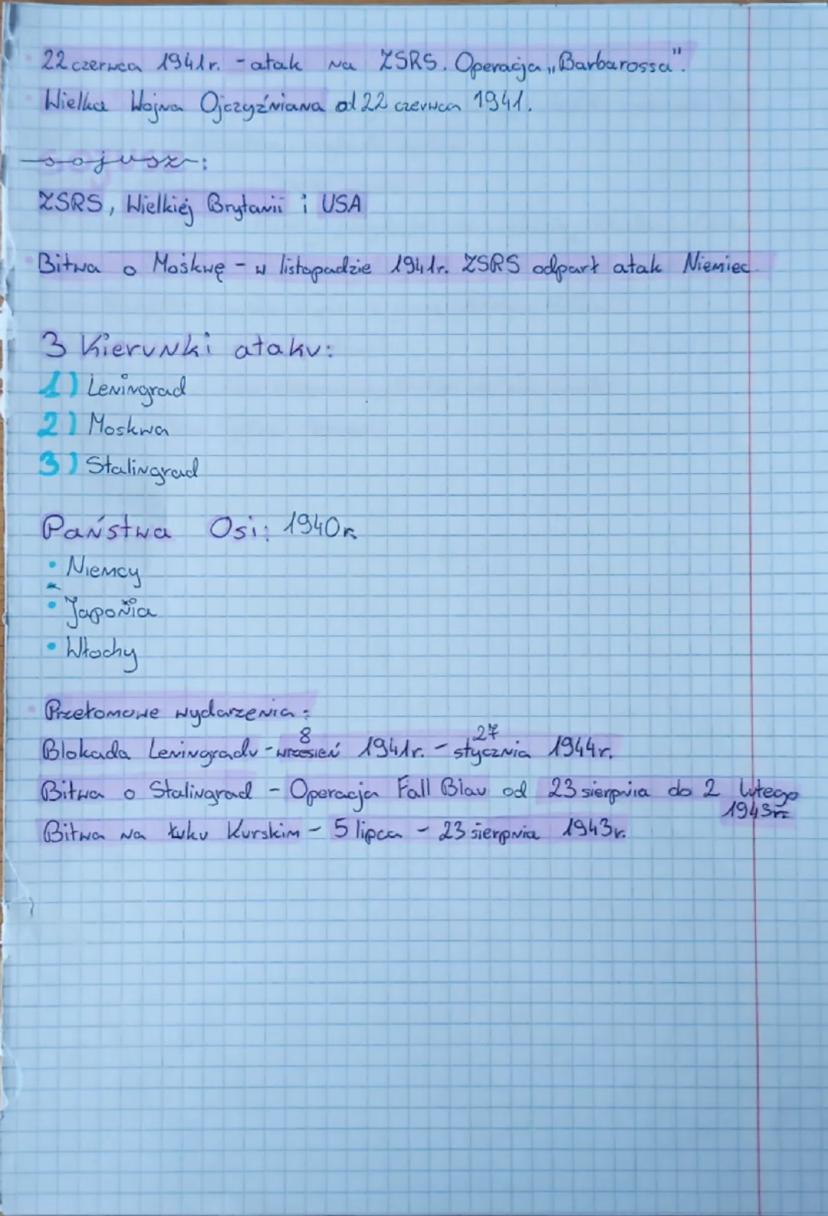 22 czerwca 1941r. - atak na ZSRS. Operacja „Barbarossa".
Wielka Wojna Ojczyźniana od 22 czerwca 1941.
sojusz:
ZSRS, Wielkiej Brytanii i USA
Bitwa o Moskwę - w listopadzie 1941r. ZSRS odparł atak Niemiec
3 kierunki ataku:
1) Leningrad
2) Moskwa
3) Stalingrad
Państwa Osi: 1940r.
• Niemcy
• Japonia
• Włochy
Przełomowe wydarzenia:
Blokada Leningradu - 8 wrzesień 1941r. - 27 stycznia 1944r.
Bitwa o Stalingrad - Operacja Fall Blau od 23 sierpnia do 2 lutego
1943r.
Bitwa na łuku Kurskim - 5 lipca - 23 sierpnia 1943r.